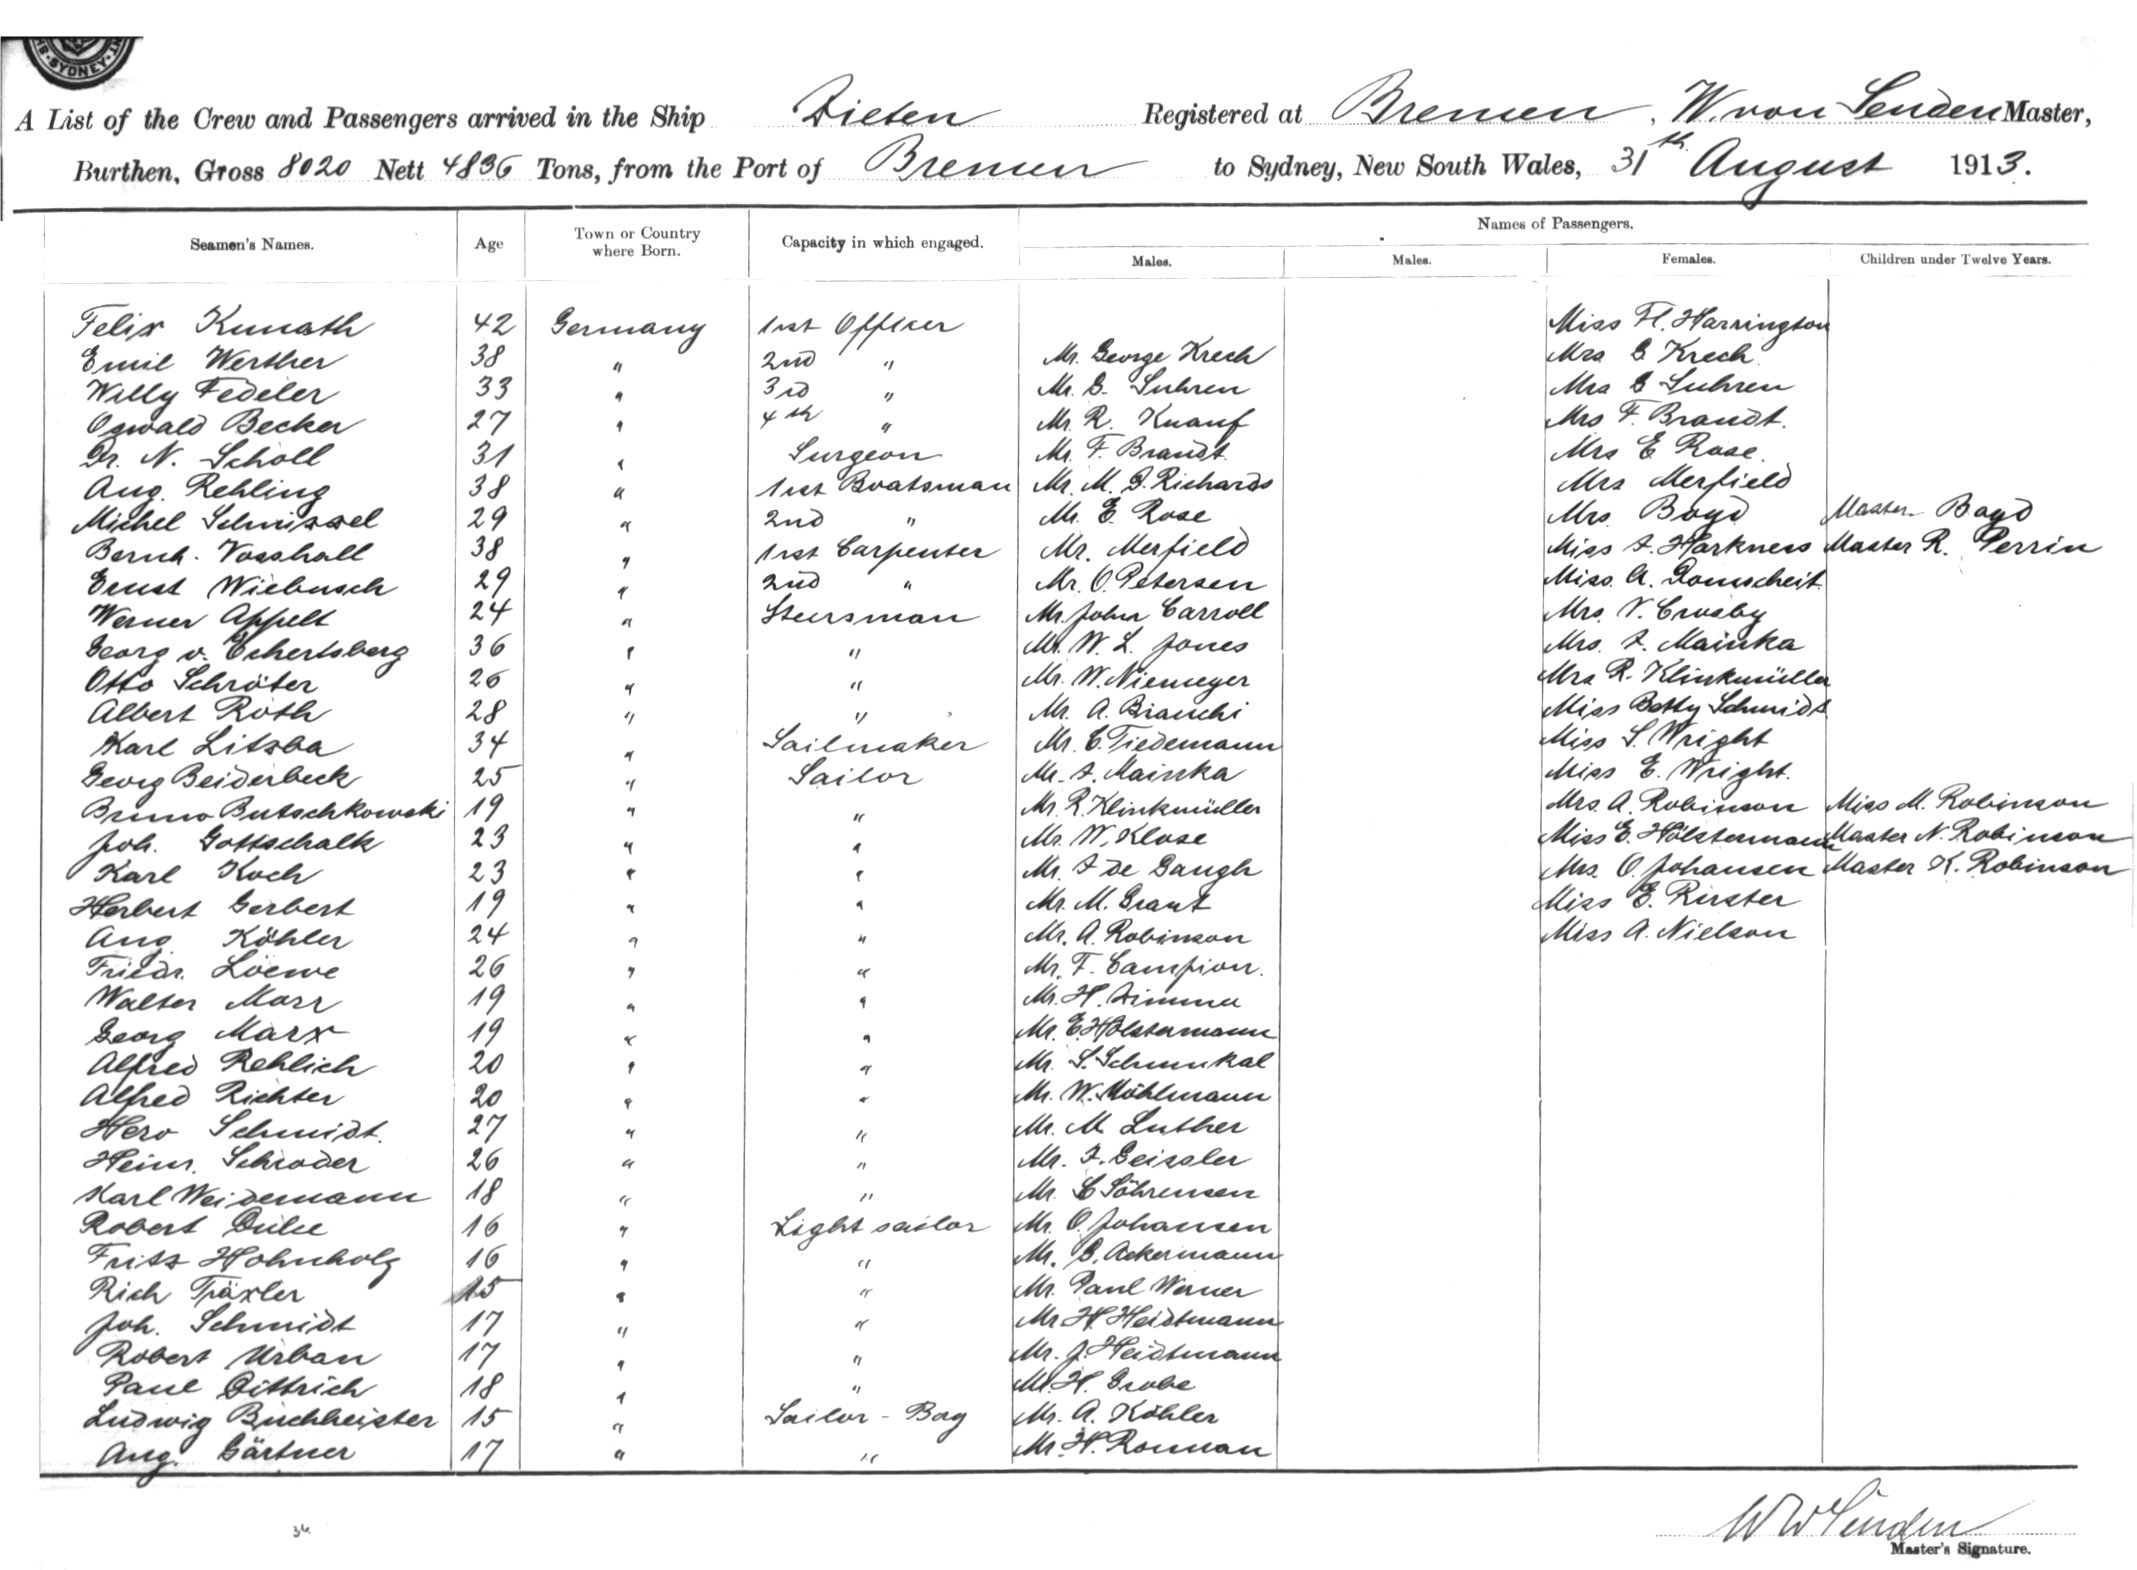 SYDNEY
A List of the Crew and Passengers arrived in the Ship Zieten Registered at Bremen, W. von Senden Master,
Burthen, Gross 8020 Nett 4836 Tons, from the Port of Bremen to Sydney, New South Wales, 31th August 1913.
Names of Passengers.
Seamen's Names. Age Town or Country where Born. Capacity in which engaged. Males. Males. Females. Children under Twelve Years.
Felix Kunath 42 Germany 1rst Officer Miss Fl. Harrington
Emil Werther 38 " 2nd " Mr. George Krech Mrs G Krech
Willy Fedeler 33 " 3rd " Mr. G. Suhren Mrs G Suhren
Oswald Becker 27 " 4th " Mr. R. Knauf Mrs F. Brandt.
Dr. N. Scholl 31 " Surgeon Mr. F. Brandt. Mrs E Rose.
Aug. Rehling 38 " 1rst Boatsman Mr. M. D. Richards Mrs Merfield
Michel Schmissel 29 " 2nd " Mr. E. Rose Mrs. Boyd Master Boyd
Bernh. Vosshall 38 " 1rst Carpenter Mr. Merfield Miss I. Harkness Master R. Perrin
Ernst Wiebusch 29 " 2nd " Mr. O. Petersen Miss. A. Domscheit
Werner Appelt 24 " Stursman Mr. John Carroll Mrs. V. Crosby
Georg v. Eckertsberg 36 " " Mr. W. L. Jones Mrs. I. Mainka
Otto Schröter 26 " " Mr. W. Niemeyer Mrs R. Klinkmüller
Albert Roth 28 " " Mr. A. Bianchi Miss Betty Schmidt
Karl Litzba 34 " Sailmaker Mr. C. Tiedemann Miss S. Wright
Georg Beiderbeck 25 " Sailor Mr. I. Mainka Miss E. Wright.
Bruno Butschkowski 19 " " Mr. R. Klinkmüller Mrs. A. Robinson Miss M. Robinson
Joh. Gottschalk 23 " " Mr. W. Klose Miss E. Hölstermann Master N. Robinson
Karl Koch 23 " " Mr. I de Baugh Mrs. O. Johansen Master K. Robinson
Herbert Gerbert 19 " " Mr. M. Grant Miss E. Ruster
Aug. Köhler 24 " " Mr. A. Robinson Miss A. Nielson
Friedr. Loewe 26 " " Mr. F. Campion.
Walter Marr 19 " " Mr. H.
Georg Marx 19 " " Mr. E. Hölstermann
Alfred Rehlich 20 " " Mr. S. Schmukal
Alfred Richter 20 " " Mr. W. Möhlmann
Hero Schmidt. 27 " " Mr. M. Luther
Heinr. Schroder 26 " " Mr. I. Geissler
Karl Weidemann 18 " " Mr. C Söhrensen
Robert 16 " Light sailor Mr. O. Johansen
Fritz Hohnholz 16 " " Mr. G. Ackermann
Rich Träxler 15 " " Mr. Paul Werner
Joh. Schmidt 17 " " Mr. H. Heidtmann
Robert Urban 17 " " Mr. J. Heidtmann
Paul Dittrich 18 " " Mr. H. Grobe
Ludwig Buchheister 15 " Sailor-Boy Mr. A. Köhler
Aug. Gärtner 17 " " Mr. H. Ronnan
36
W v Senden
Master's Signature.